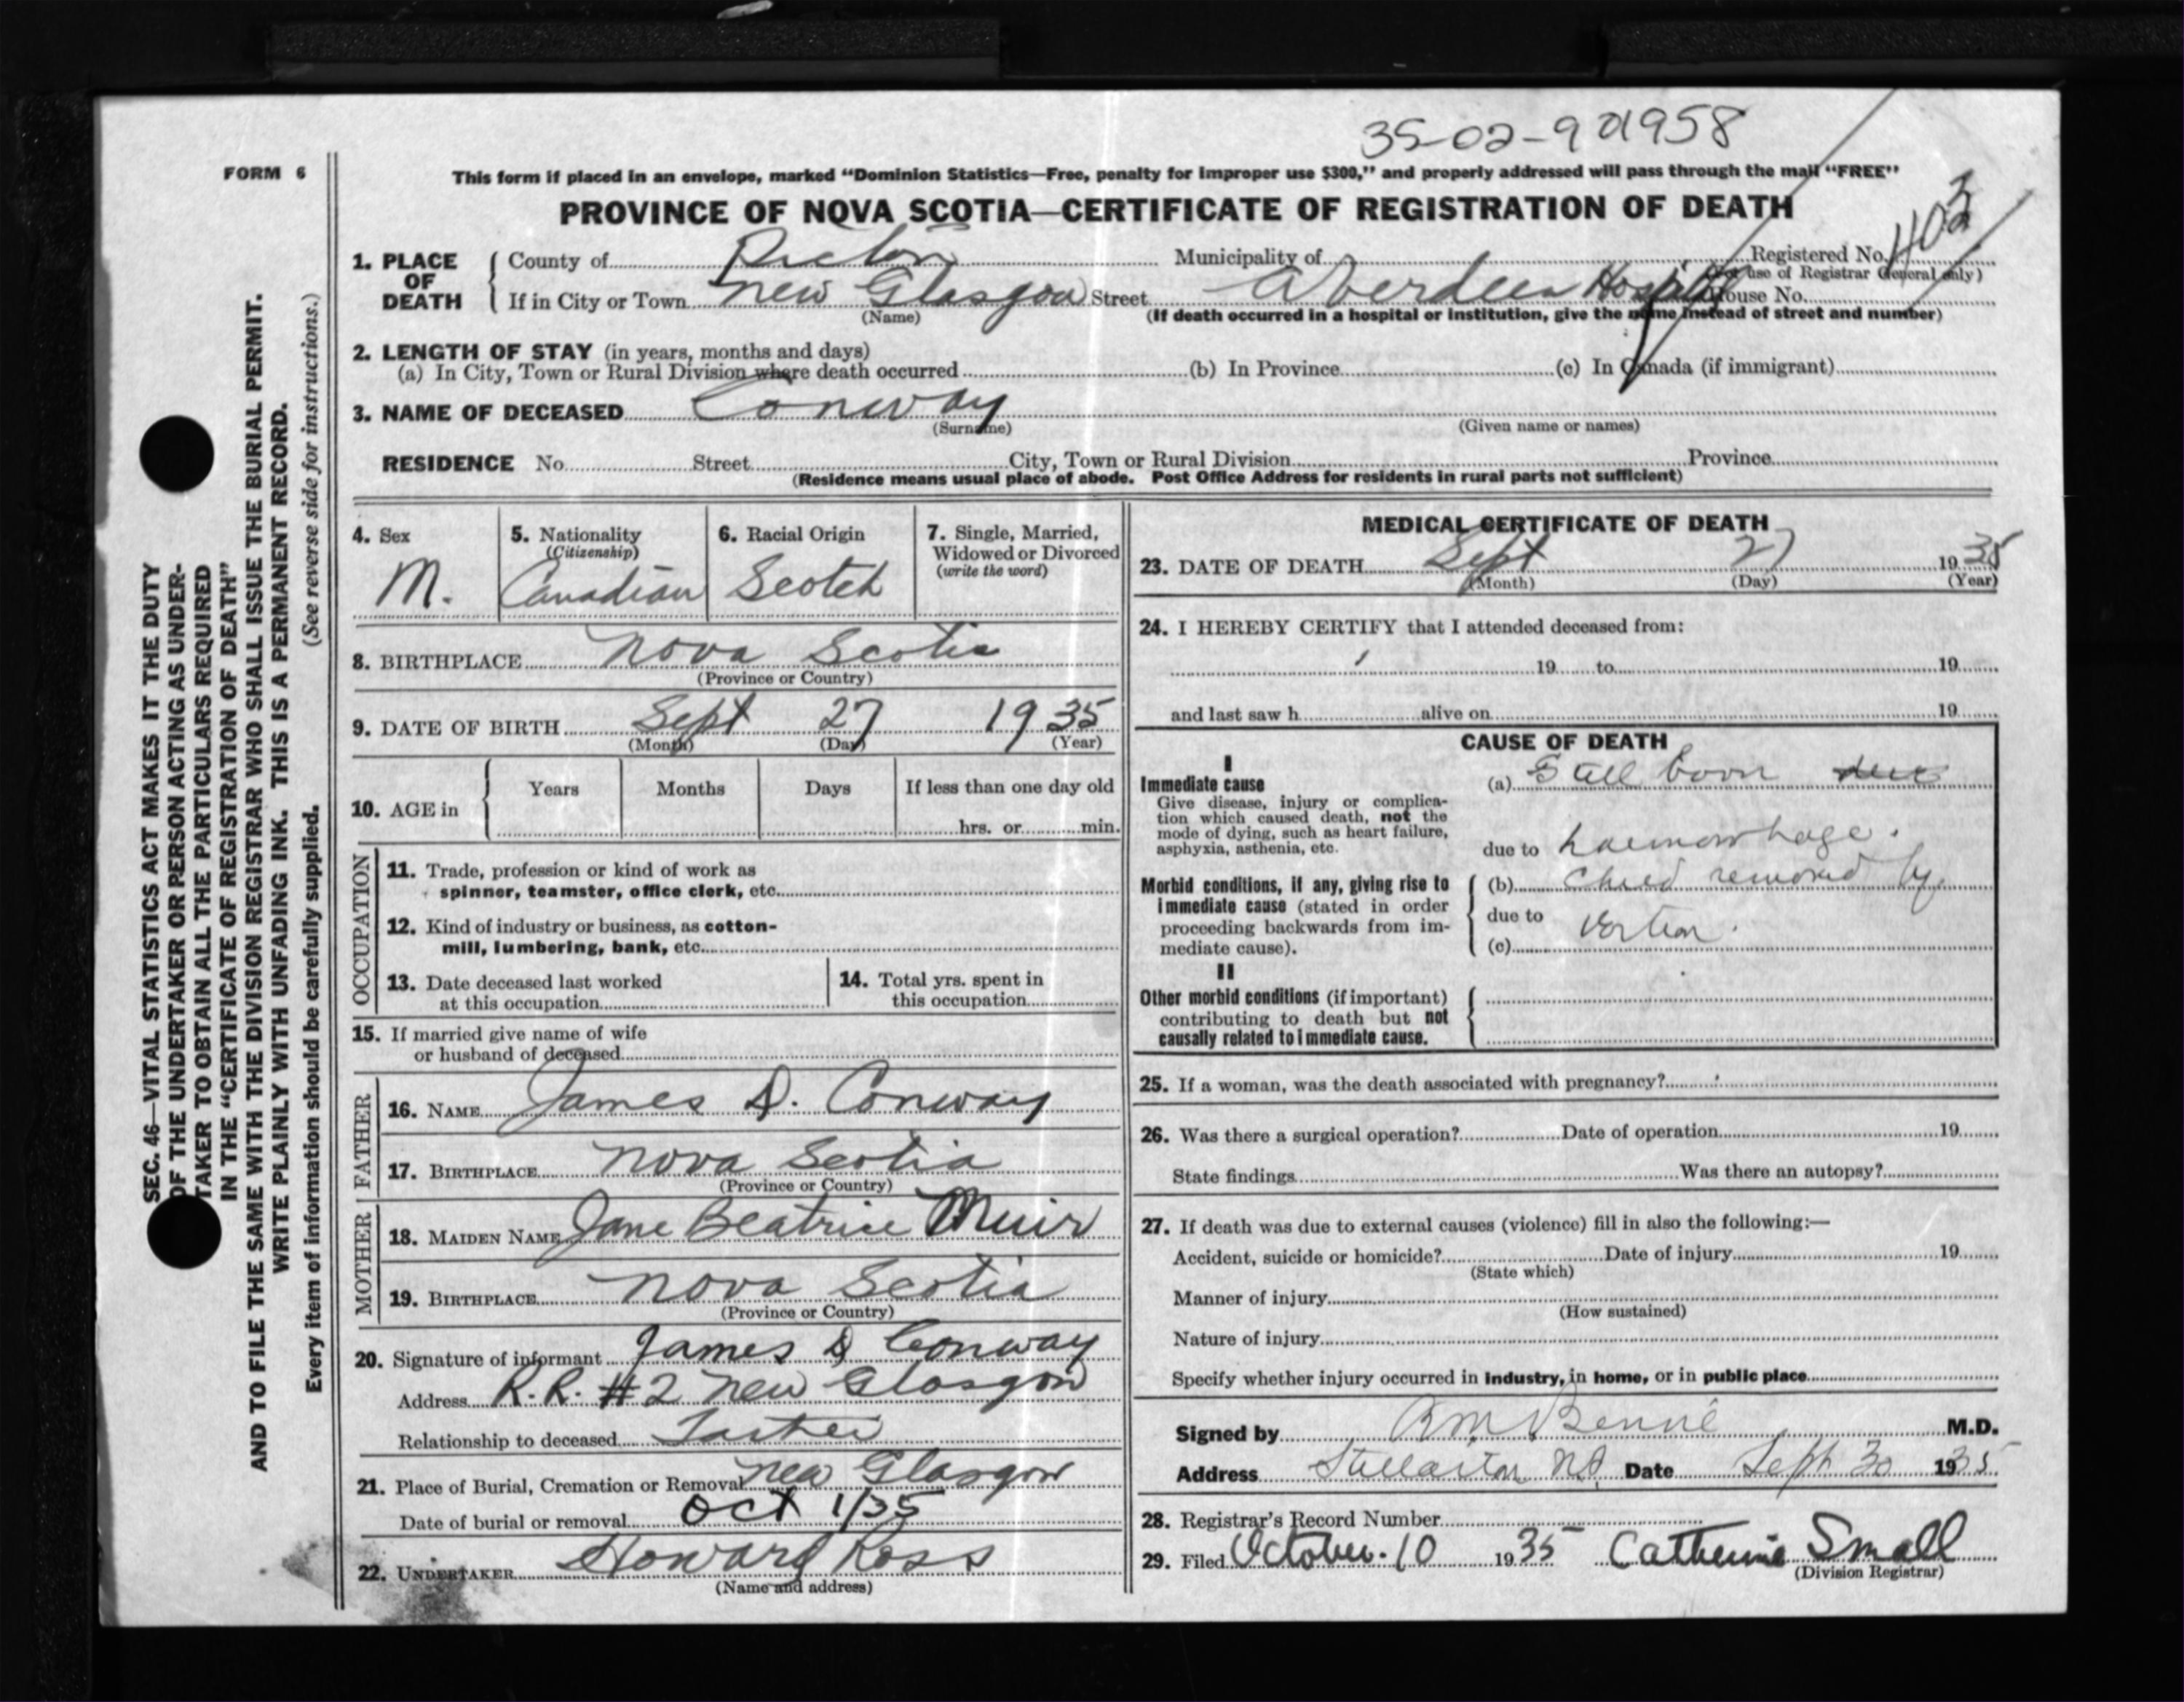 35-02-9 01958
FORM 6
This form if placed in an envelope, marked "Dominion Statistics—Free, penalty for improper use $300," and properly addressed will pass through the mail "FREE"
PROVINCE OF NOVA SCOTIA—CERTIFICATE OF REGISTRATION OF DEATH
1. PLACE OF DEATH
County of Pictou Municipality of Registered No.
(For use of Registrar General only)
If in City or Town New Glasgow Street Aberdeen Hospital House No.
(Name) (If death occurred in a hospital or institution, give the name instead of street and number)
2. LENGTH OF STAY (in years, months and days)
(a) In City, Town or Rural Division where death occurred (b) In Province (c) In Canada (if immigrant)
3. NAME OF DECEASED Conway
(Surname) (Given name or names)
RESIDENCE No. Street City, Town or Rural Division Province
(Residence means usual place of abode. Post Office Address for residents in rural parts not sufficient)
4. Sex
M.
5. Nationality
(Citizenship)
Canadian
6. Racial Origin
Scotch
7. Single, Married,
Widowed or Divorced
(write the word)
8. BIRTHPLACE Nova Scotia
(Province or Country)
9. DATE OF BIRTH Sept 27 1935
(Month) (Day) (Year)
10. AGE in
Years Months Days If less than one day old
hrs. or min.
OCCUPATION
11. Trade, profession or kind of work as
spinner, teamster, office clerk, etc.
12. Kind of industry or business, as cotton-
mill, lumbering, bank, etc.
13. Date deceased last worked
at this occupation
14. Total yrs. spent in
this occupation
15. If married give name of wife
or husband of deceased
FATHER
16. NAME James D. Conway
17. BIRTHPLACE Nova Scotia
(Province or Country)
MOTHER
18. MAIDEN NAME Jane Beatrice Muir
19. BIRTHPLACE Nova Scotia
(Province or Country)
20. Signature of informant James D Conway
Address R.R. #2 New Glasgow
Relationship to deceased Father
21. Place of Burial, Cremation or Removal New Glasgow
Date of burial or removal Oct 1/35
22. UNDERTAKER Howard Ross
(Name and address)
MEDICAL CERTIFICATE OF DEATH
23. DATE OF DEATH Sept 27 1935
(Month) (Day) (Year)
24. I HEREBY CERTIFY that I attended deceased from:
19 to 19
and last saw h alive on 19
CAUSE OF DEATH
I
Immediate cause
Give disease, injury or complica-
tion which caused death, not the
mode of dying, such as heart failure,
asphyxia, asthenia, etc.
(a) Still born due
due to haemorrhage.
Morbid conditions, if any, giving rise to
immediate cause (stated in order
proceeding backwards from im-
mediate cause).
(b) Child removed by
due to version.
(c)
II
Other morbid conditions (if important)
contributing to death but not
causally related to immediate cause.
25. If a woman, was the death associated with pregnancy?
26. Was there a surgical operation? Date of operation 19
State findings Was there an autopsy?
27. If death was due to external causes (violence) fill in also the following:—
Accident, suicide or homicide? Date of injury 19
(State which)
Manner of injury
(How sustained)
Nature of injury
Specify whether injury occurred in industry, in home, or in public place
Signed by M.D.
Address Stellarton NS. Date Sept 30 1935
28. Registrar's Record Number
29. Filed October 10 1935 Catherine Small
(Division Registrar)
SEC. 46—VITAL STATISTICS ACT MAKES IT THE DUTY
OF THE UNDERTAKER OR PERSON ACTING AS UNDER-
TAKER TO OBTAIN ALL THE PARTICULARS REQUIRED
IN THE "CERTIFICATE OF REGISTRATION OF DEATH"
AND TO FILE THE SAME WITH THE DIVISION REGISTRAR WHO SHALL ISSUE THE BURIAL PERMIT.
WRITE PLAINLY WITH UNFADING INK. THIS IS A PERMANENT RECORD.
Every item of information should be carefully supplied. (See reverse side for instructions.)